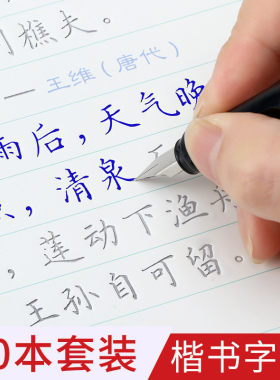 樵夫。
—— 王维（唐代）
雨后，天气晚
，清泉
，莲动下渔舟
王孙自可留。
0本套装
楷书字